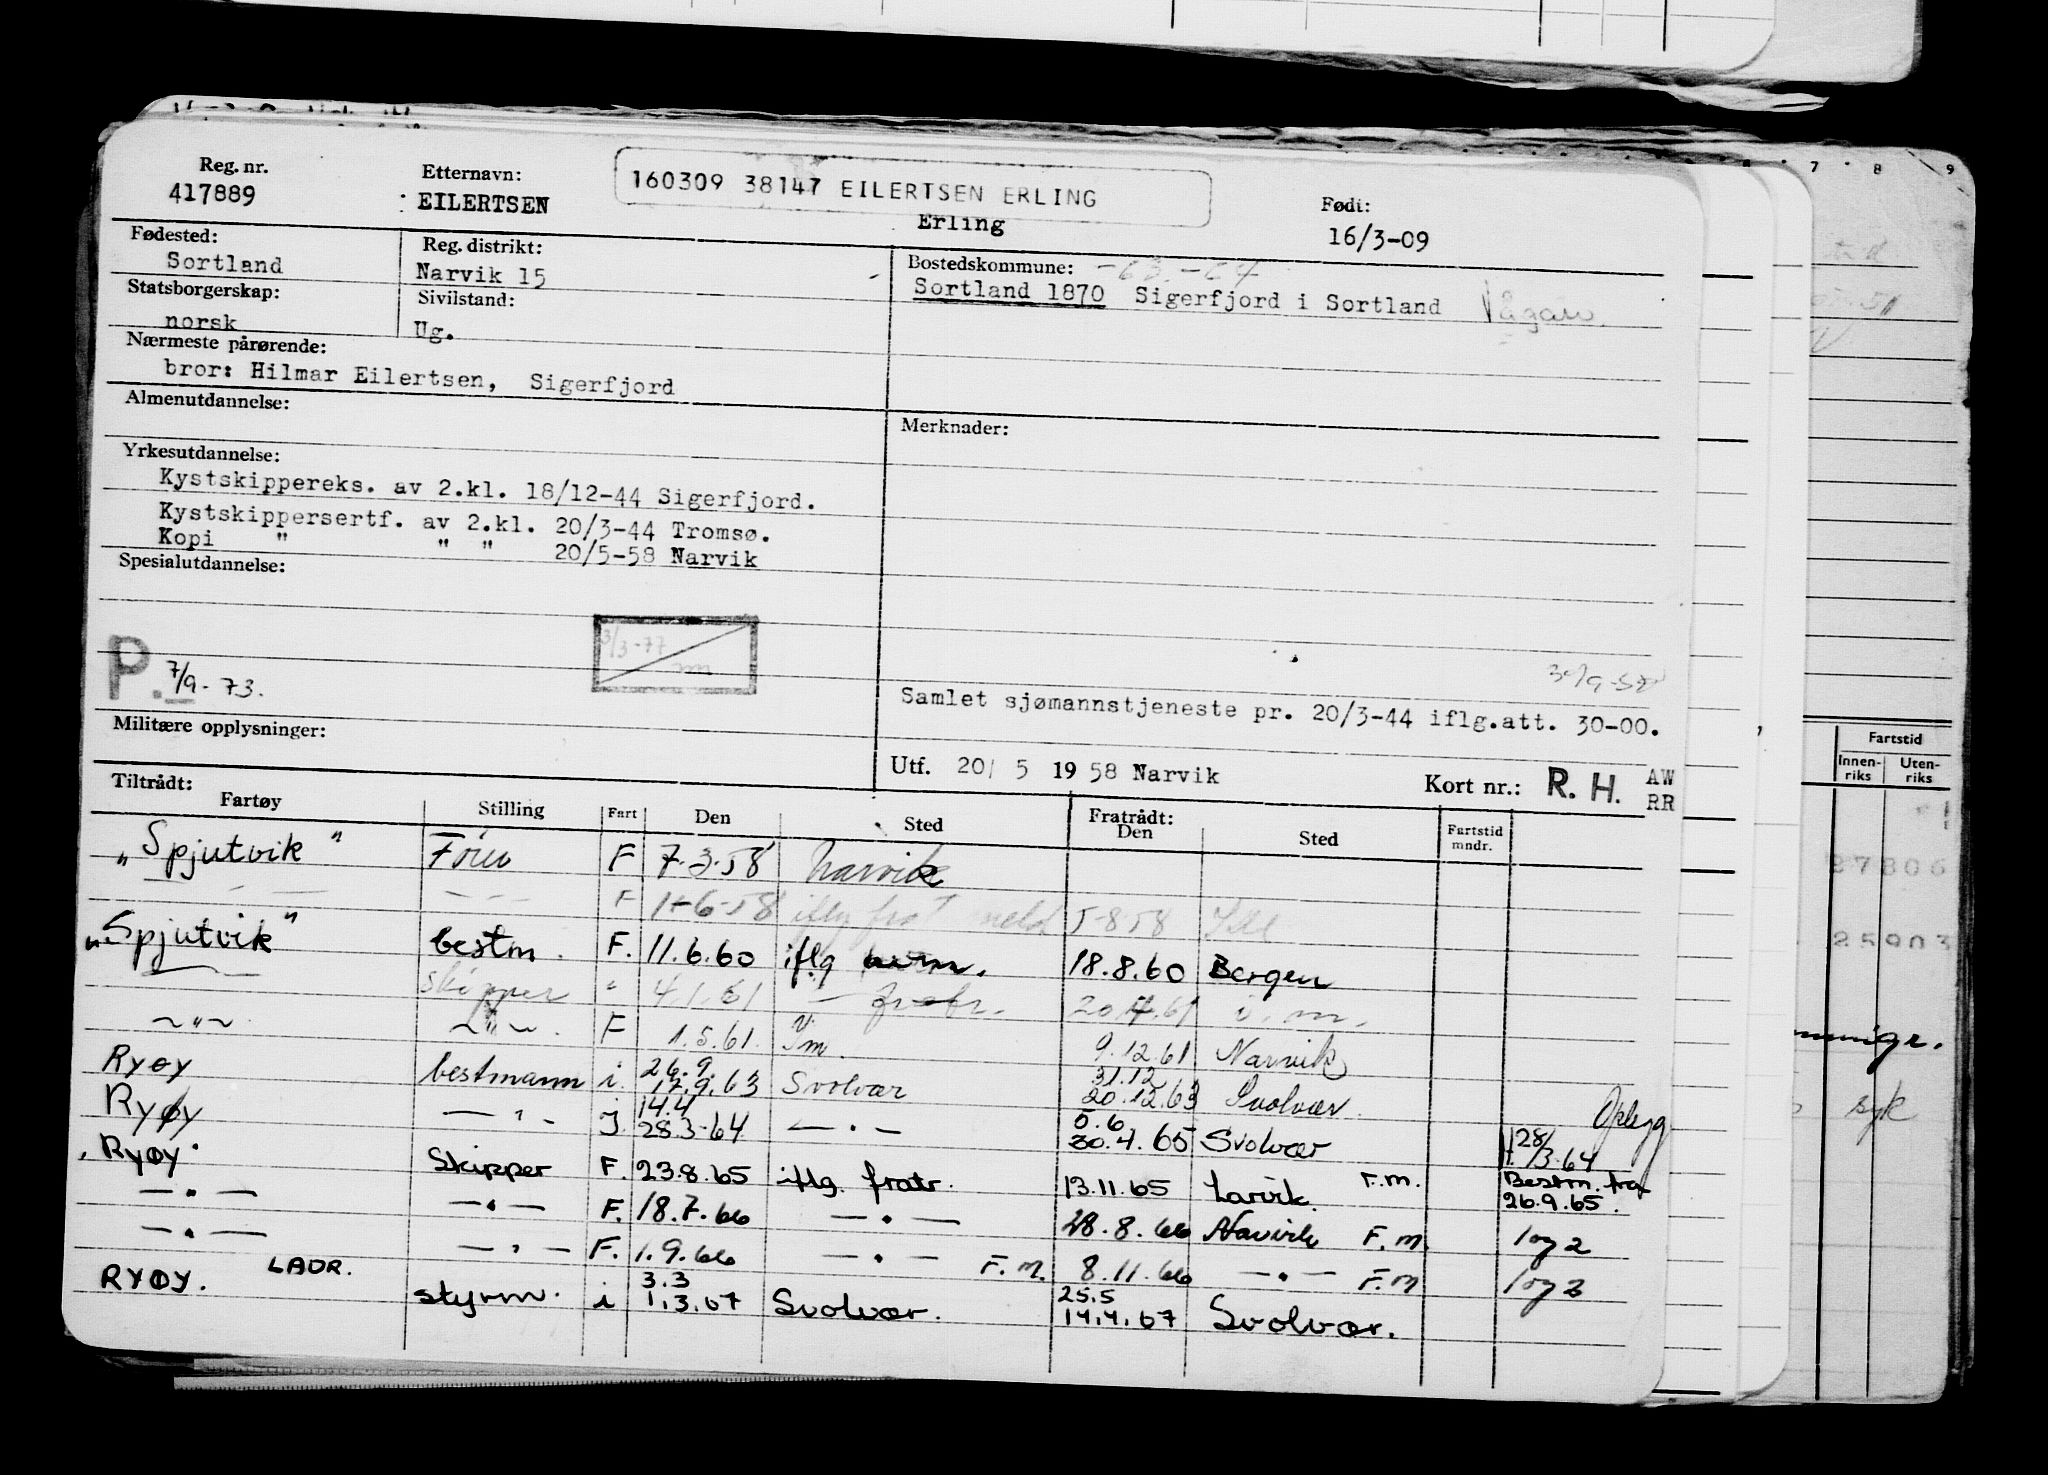 Reg. nr.
417889
Etternavn:
EILERTSEN
160309 38147 EILERTSEN ERLING
Erling
Født:
16/3-09
Fødested:
Sortland
Reg. distrikt:
Narvik 15
Bostedskommune: -63.-64
Sortland 1870 Sigerfjord i Sortland Vågan
Statsborgerskap:
norsk
Sivilstand:
Ug.
Nærmeste pårørende:
bror: Hilmar Eilertsen, Sigerfjord
Almenutdannelse:
Merknader:
Yrkesutdannelse:
Kystskippereks. av 2.kl. 18/12-44 Sigerfjord.
Kystskippersertf. av 2.kl. 20/3-44 Tromsø.
Kopi " " " 20/5-58 Narvik
Spesialutdannelse:
3/3-77
P. 7/9-73.
30/9-58
Samlet sjømannstjeneste pr. 20/3-44 iflg.att. 30-00.
Militære opplysninger:
Utf. 20/ 5 1958 Narvik
Kort nr.: R. H. AW
RR
Tiltrådt:
Fartøy Stilling Fart Den Sted Fratrådt: Den Sted Fartstid mndr.
"Spjutvik" F 7-3-58 Narvik
— " — F 1-6-58 iflg frat meld 5-8-58
"Spjutvik" bestm. F. 11.6.60 iflg 18.8.60 Bergen
skipper " 4.1.61 — fratr. 20.4.61 i. m.
~"~ ~"~. F 1.5.61. I m. 9.12.61 Narvik
Ryøy bestmann i. 26.9. 17.9.63 Svolvær 31.12 20.12.63 Svolvær.
Ryøy — " — I 14.4 28.3-64 — " — 5.6 30.4.65 Svolvær Opbygg 28/3-64
Ryøy Skipper F. 23.8.65 iflg. fratr. 13.11.65 Larvik. F.m. Bestm. fra 26.9.65.
— " — — " — F. 18.7.66 — " — 28.8.66 Narvik F.m. 1 og 2
— " — — " — F. 1.9.66 — " — F.M. 8.11.66 — " — F.M 1 og 2
RYØY. LADR. styrm. i 3.3 1.3.67 Svolvær. 25.5 14.4.67 Svolvær.
7 8 9
Fartstid
Innen-
riks
Uten-
riks
27806
25903
syk